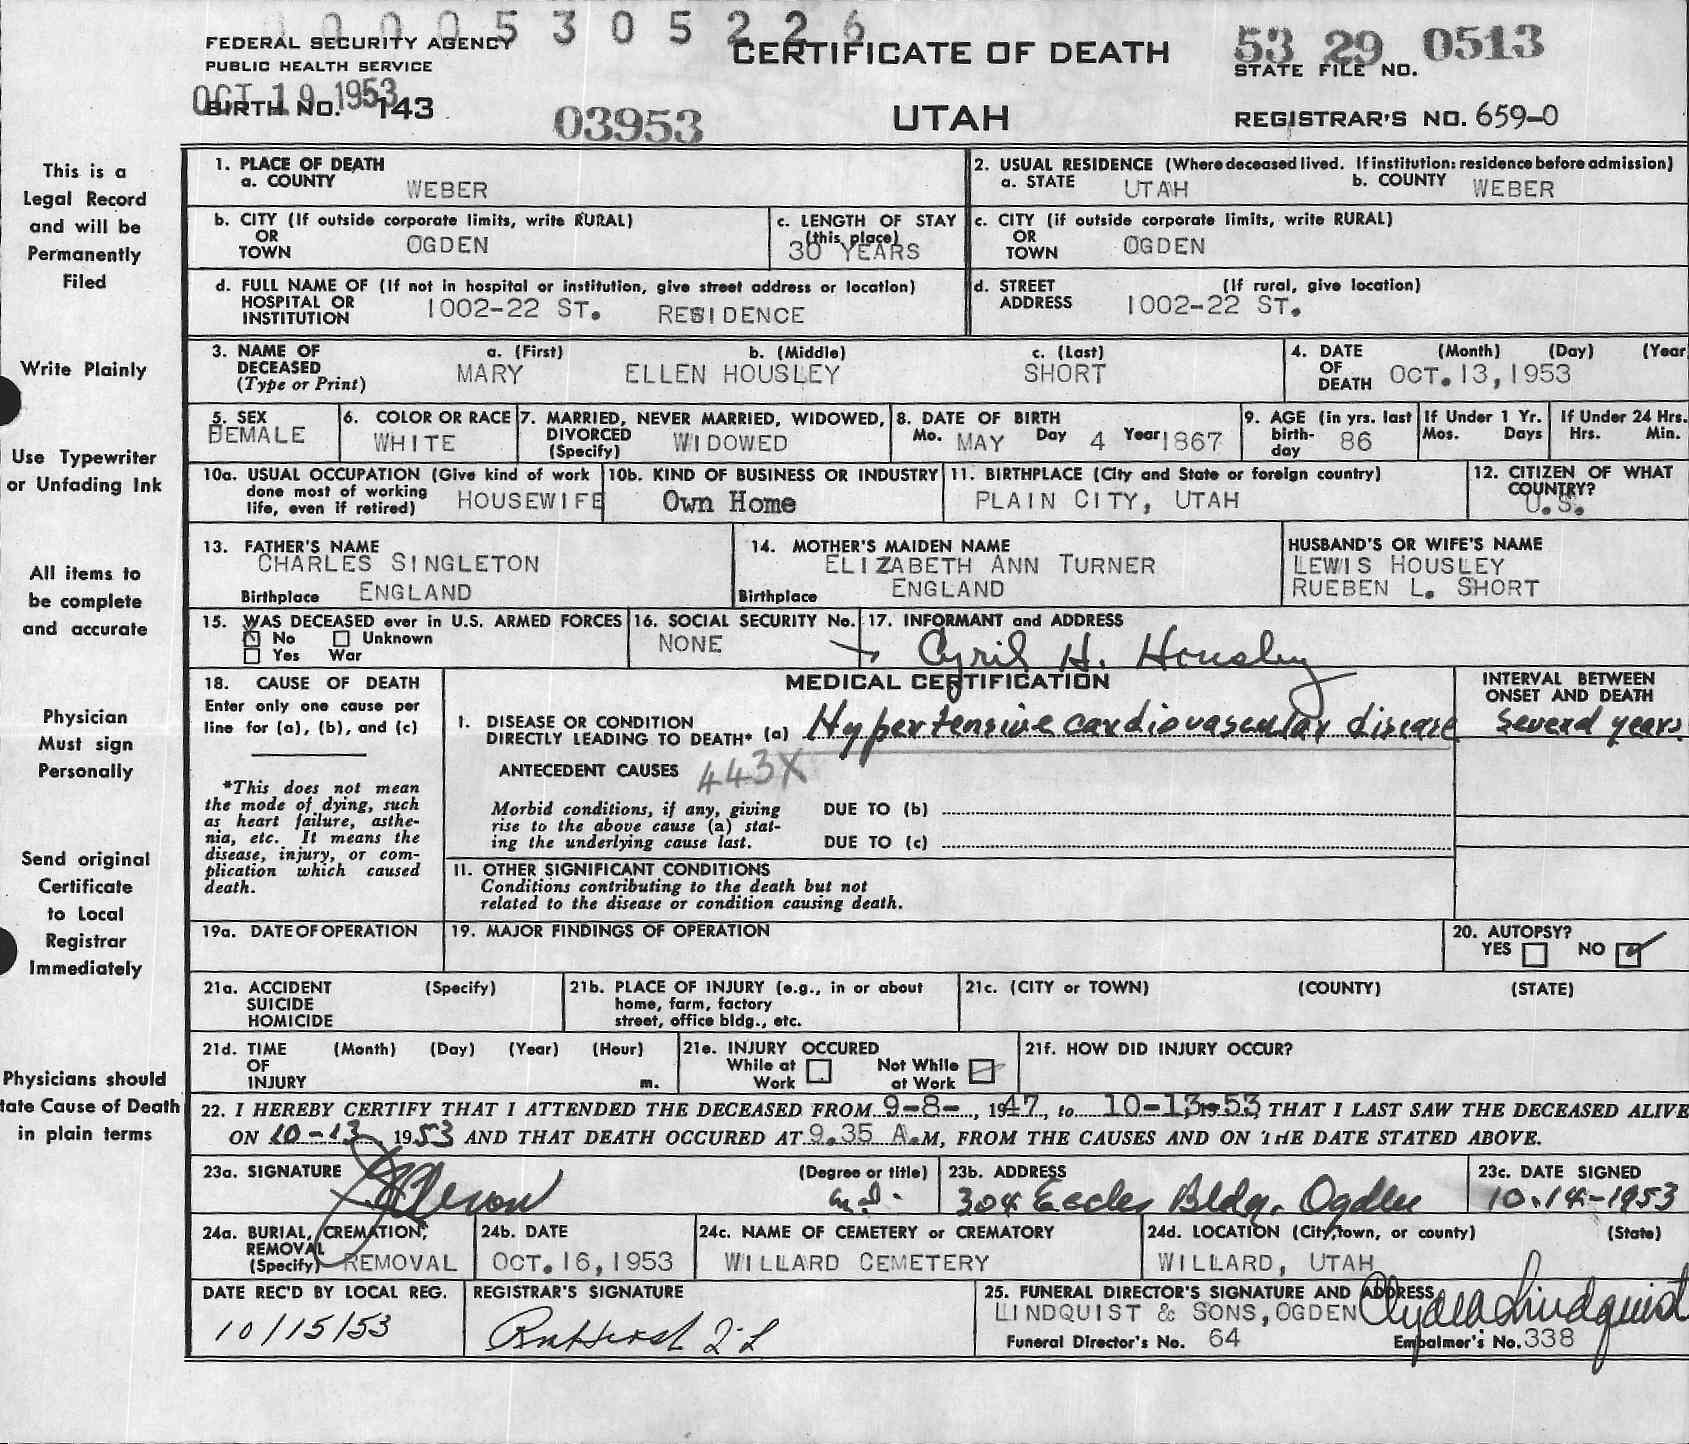 0005305226
FEDERAL SECURITY AGENCY
PUBLIC HEALTH SERVICE
CERTIFICATE OF DEATH
53 29 0513
STATE FILE NO.
OCT 19 1953
BIRTH NO. 143
03953
UTAH
REGISTRAR'S NO. 659-0
This is a
Legal Record
and will be
Permanently
Filed
Write Plainly
Use Typewriter
or Unfading Ink
All items to
be complete
and accurate
Physician
Must sign
Personally
Send original
Certificate
to Local
Registrar
Immediately
Physicians should
tate Cause of Death
in plain terms
1. PLACE OF DEATH
a. COUNTY WEBER
2. USUAL RESIDENCE (Where deceased lived. If institution: residence before admission)
a. STATE UTAH b. COUNTY WEBER
b. CITY (If outside corporate limits, write RURAL)
OR
TOWN OGDEN
c. LENGTH OF STAY
(this place)
30 YEARS
c. CITY (if outside corporate limits, write RURAL)
OR
TOWN OGDEN
d. FULL NAME OF (If not in hospital or institution, give street address or location)
HOSPITAL OR
INSTITUTION 1002-22 ST. RESIDENCE
d. STREET (If rural, give location)
ADDRESS 1002-22 ST.
3. NAME OF
DECEASED
(Type or Print)
a. (First) b. (Middle) c. (Last)
MARY ELLEN HOUSLEY SHORT
4. DATE (Month) (Day) (Year
OF
DEATH OCT. 13, 1953
5. SEX
FEMALE
6. COLOR OR RACE
WHITE
7. MARRIED, NEVER MARRIED, WIDOWED,
DIVORCED
(Specify) WIDOWED
8. DATE OF BIRTH
Mo. MAY Day 4 Year 1867
9. AGE (in yrs. last
birth-
day 86
If Under 1 Yr.
Mos. Days
If Under 24 Hrs.
Hrs. Min.
10a. USUAL OCCUPATION (Give kind of work
done most of working
life, even if retired) HOUSEWIFE
10b. KIND OF BUSINESS OR INDUSTRY
Own Home
11. BIRTHPLACE (City and State or foreign country)
PLAIN CITY, UTAH
12. CITIZEN OF WHAT
COUNTRY?
U.S.
13. FATHER'S NAME
CHARLES SINGLETON
Birthplace ENGLAND
14. MOTHER'S MAIDEN NAME
ELIZABETH ANN TURNER
Birthplace ENGLAND
HUSBAND'S OR WIFE'S NAME
LEWIS HOUSLEY
RUEBEN L. SHORT
15. WAS DECEASED ever in U.S. ARMED FORCES
No Unknown
Yes War
16. SOCIAL SECURITY No.
NONE
17. INFORMANT and ADDRESS
Cyril H. Housley
18. CAUSE OF DEATH
Enter only one cause per
line for (a), (b), and (c)
*This does not mean
the mode of dying, such
as heart failure, asthe-
nia, etc. It means the
disease, injury, or com-
plication which caused
death.
MEDICAL CERTIFICATION
INTERVAL BETWEEN
ONSET AND DEATH
I. DISEASE OR CONDITION
DIRECTLY LEADING TO DEATH* (a) Hypertensive cardiovascular disease Several years.
ANTECEDENT CAUSES 443X
Morbid conditions, if any, giving
rise to the above cause (a) stat-
ing the underlying cause last.
DUE TO (b)
DUE TO (c)
11. OTHER SIGNIFICANT CONDITIONS
Conditions contributing to the death but not
related to the disease or condition causing death.
19a. DATE OF OPERATION
19. MAJOR FINDINGS OF OPERATION
20. AUTOPSY?
YES NO
21a. ACCIDENT (Specify)
SUICIDE
HOMICIDE
21b. PLACE OF INJURY (e.g., in or about
home, farm, factory
street, office bldg., etc.
21c. (CITY or TOWN) (COUNTY) (STATE)
21d. TIME (Month) (Day) (Year) (Hour)
OF
INJURY m.
21e. INJURY OCCURED
While at Work
Not While at Work
21f. HOW DID INJURY OCCUR?
22. I HEREBY CERTIFY THAT I ATTENDED THE DECEASED FROM 9-8-, 1947, to 10-13-1953 THAT I LAST SAW THE DECEASED ALIVE
ON 10-13, 1953 AND THAT DEATH OCCURED AT 9.35 A.M, FROM THE CAUSES AND ON THE DATE STATED ABOVE.
23a. SIGNATURE (Degree or title)
M.D.
23b. ADDRESS
304 Eccles Bldg. Ogden
23c. DATE SIGNED
10-14-1953
24a. BURIAL, CREMATION,
REMOVAL
(Specify) REMOVAL
24b. DATE
OCT. 16, 1953
24c. NAME OF CEMETERY or CREMATORY
WILLARD CEMETERY
24d. LOCATION (City, town, or county) (State)
WILLARD, UTAH
DATE REC'D BY LOCAL REG.
10/15/53
REGISTRAR'S SIGNATURE
25. FUNERAL DIRECTOR'S SIGNATURE AND ADDRESS
LINDQUIST & SONS, OGDEN Clyde Lindquist
Funeral Director's No. 64 Embalmer's No. 338